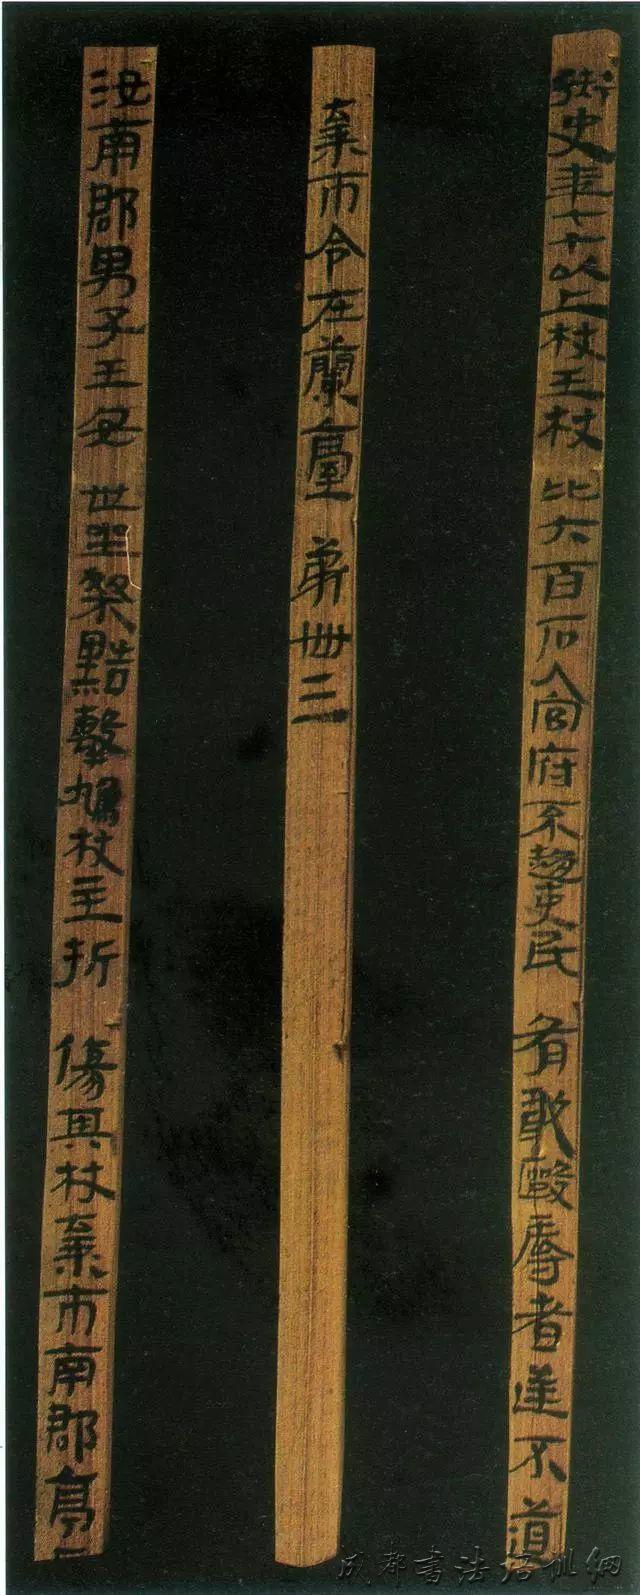 御史年七十以上杖王杖比六百石入官府不趨吏民有敢毆辱者逆不道
棄市令在蘭臺弟卌三
汝南郡男子王安世坐桀黠擊鳩杖主折傷其杖棄市南郡亭
成都书法培训网